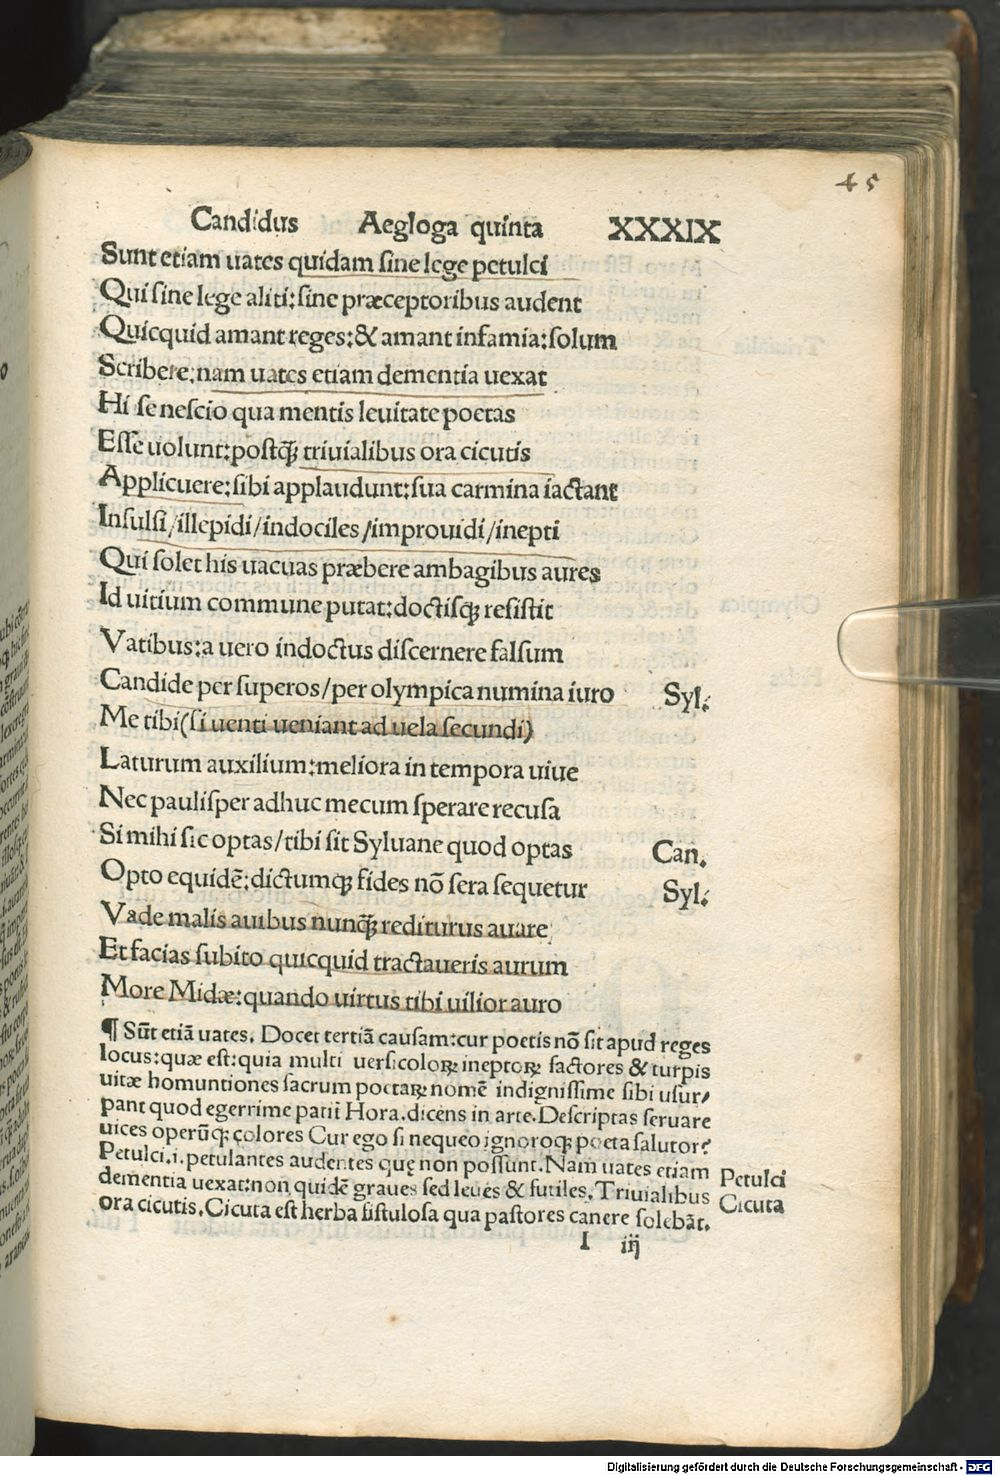 45
Candidus Aegloga quinta XXXIX
Sunt etiam uates quidam sine lege petulci
Qui sine lege aliti: sine præceptoribus audent
Quicquid amant reges: & amant infamia: solum
Scribere: nam uates etiam dementia uexat
Hi se nescio qua mentis leuitate poetas
Esse uolunt: postꝗ̃ triuialibus ora cicutis
Applicuere: sibi applaudunt: sua carmina iactant
Insulsi/illepidi/indociles/improuidi/inepti
Qui solet his uacuas præbere ambagibus aures
Id uitium commune putat: doctisqꝫ resistit
Vatibus: a uero indoctus discernere falsum
Candide per superos/per olympica numina iuro Syl:
Me tibi (si uenti ueniant ad uela secundi)
Laturum auxilium: meliora in tempora uiue
Nec paulisper adhuc mecum sperare recusa
Si mihi sic optas/tibi sit Syluane quod optas Can.
Opto equidē: dictumqꝫ fides nō sera sequetur Syl:
Vade malis auibus nunꝗ̃ rediturus auare
Et facias subito quicquid tractaueris aurum
More Midæ: quando uirtus tibi uilior auro
¶ Sūt etiā uates. Docet tertiā causam: cur poetis nō sit apud reges
locus: quæ est: quia multi uersicoloꝝ ineptoꝝ factores & turpis
uitæ homuntiones sacrum poetaꝝ nomē indignissime sibi usur/
pant quod egerrime patiť Hora. dicens in arte. Descriptas seruare
uices operūqꝫ colores Cur ego si nequeo ignoroqꝫ poeta salutor?
Petulci .i. petulantes audentes quę non possunt. Nam uates etiam Petulci
dementia uexat: non quidē graues sed leues & futiles. Triuialibus Cicuta
ora cicutis. Cicuta est herba fistulosa qua pastores canere solebāt.
I iij
Digitalisierung gefördert durch die Deutsche Forschungsgemeinschaft - DFG